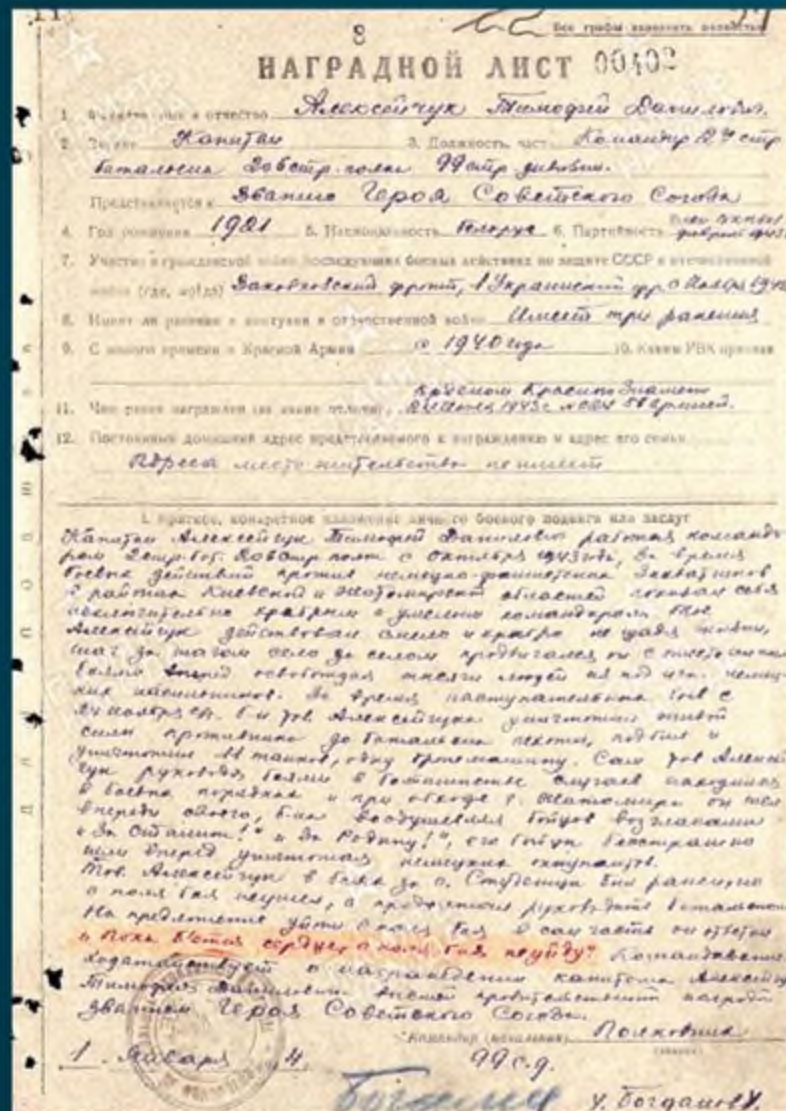 8
Все графы заполнять полностью
НАГРАДНОЙ ЛИСТ 00402
1. отчество Алексейчук Тимофей Данилович.
2. Звание Капитан 3. Должность, часть Командир 2й стр
батальона 206 стр. полка 99 стр. дивизии.
Представляется к Званию Героя Советского Союза
4. Год рождения 1921 5. Национальность белорус 6. Партийность
7. Участие в гражданской войне, последующих боевых действиях по защите СССР и отечественной
войне (где, когда) фронт, 1 Украинский фр
8. Имеет ли ранения и контузии в отечественной войне Имеет три ранения
9. С какого времени в Красной Армии с 1940 года 10. Каким РВК призван
Орденом Красного Знамени
11. Чем ранее награжден (за какие отличия) 1943 г. армией.
12. Постоянный домашний адрес представляемого к награждению и адрес его семьи
Адреса место жительство не имеет
I. Краткое, конкретное изложение личного боевого подвига или заслуг
Капитан Алексейчук Тимофей Данилович работая команди-
ром 2 стр. бат. 206 стр полка с октября 1943 года, За время
боевых действий против немецко-фашистских захватчиков
в районах Киевской и Житомирской областей показал себя
исключительно храбрым и умелым командиром. Тов
Алексейчук действовал смело и храбро не щадя жизни,
шаг за шагом село за селом продвигался он с
боями вперед освобождая тысячи людей из под ига немец-
ких насильников. За время наступательных боев с
24 б-н тов. Алексейчука уничтожил живой
силы противника до батальона пехоты, подбил и
уничтожил 11 танков, одну бронемашину. Сам тов Алексей-
чук руководя боями в большинстве случаев находился
в боевых порядках и при обходе г. Житомира он шел
впереди своего, б-на воодушевляя бойцов возгласами
„За Сталина!" „За Родину!", его бойцы бесстрашно
шли вперед уничтожая немецких оккупантов.
Тов. Алексейчук в боях за с. Студеница был ранен, но
с поля боя неушел, а продолжал руководить батальоном
На предложение уйти с поля боя в сан часть он ответил
„Пока бьется сердце, с поля боя неуйду" Командование
ходатайствует о награждении капитана Алексейчук
Тимофея Даниловича высшей правительственной наградой
званием Героя Советского Союза.
Командир (начальник) Полковник
1 Января 4 99 с.д.